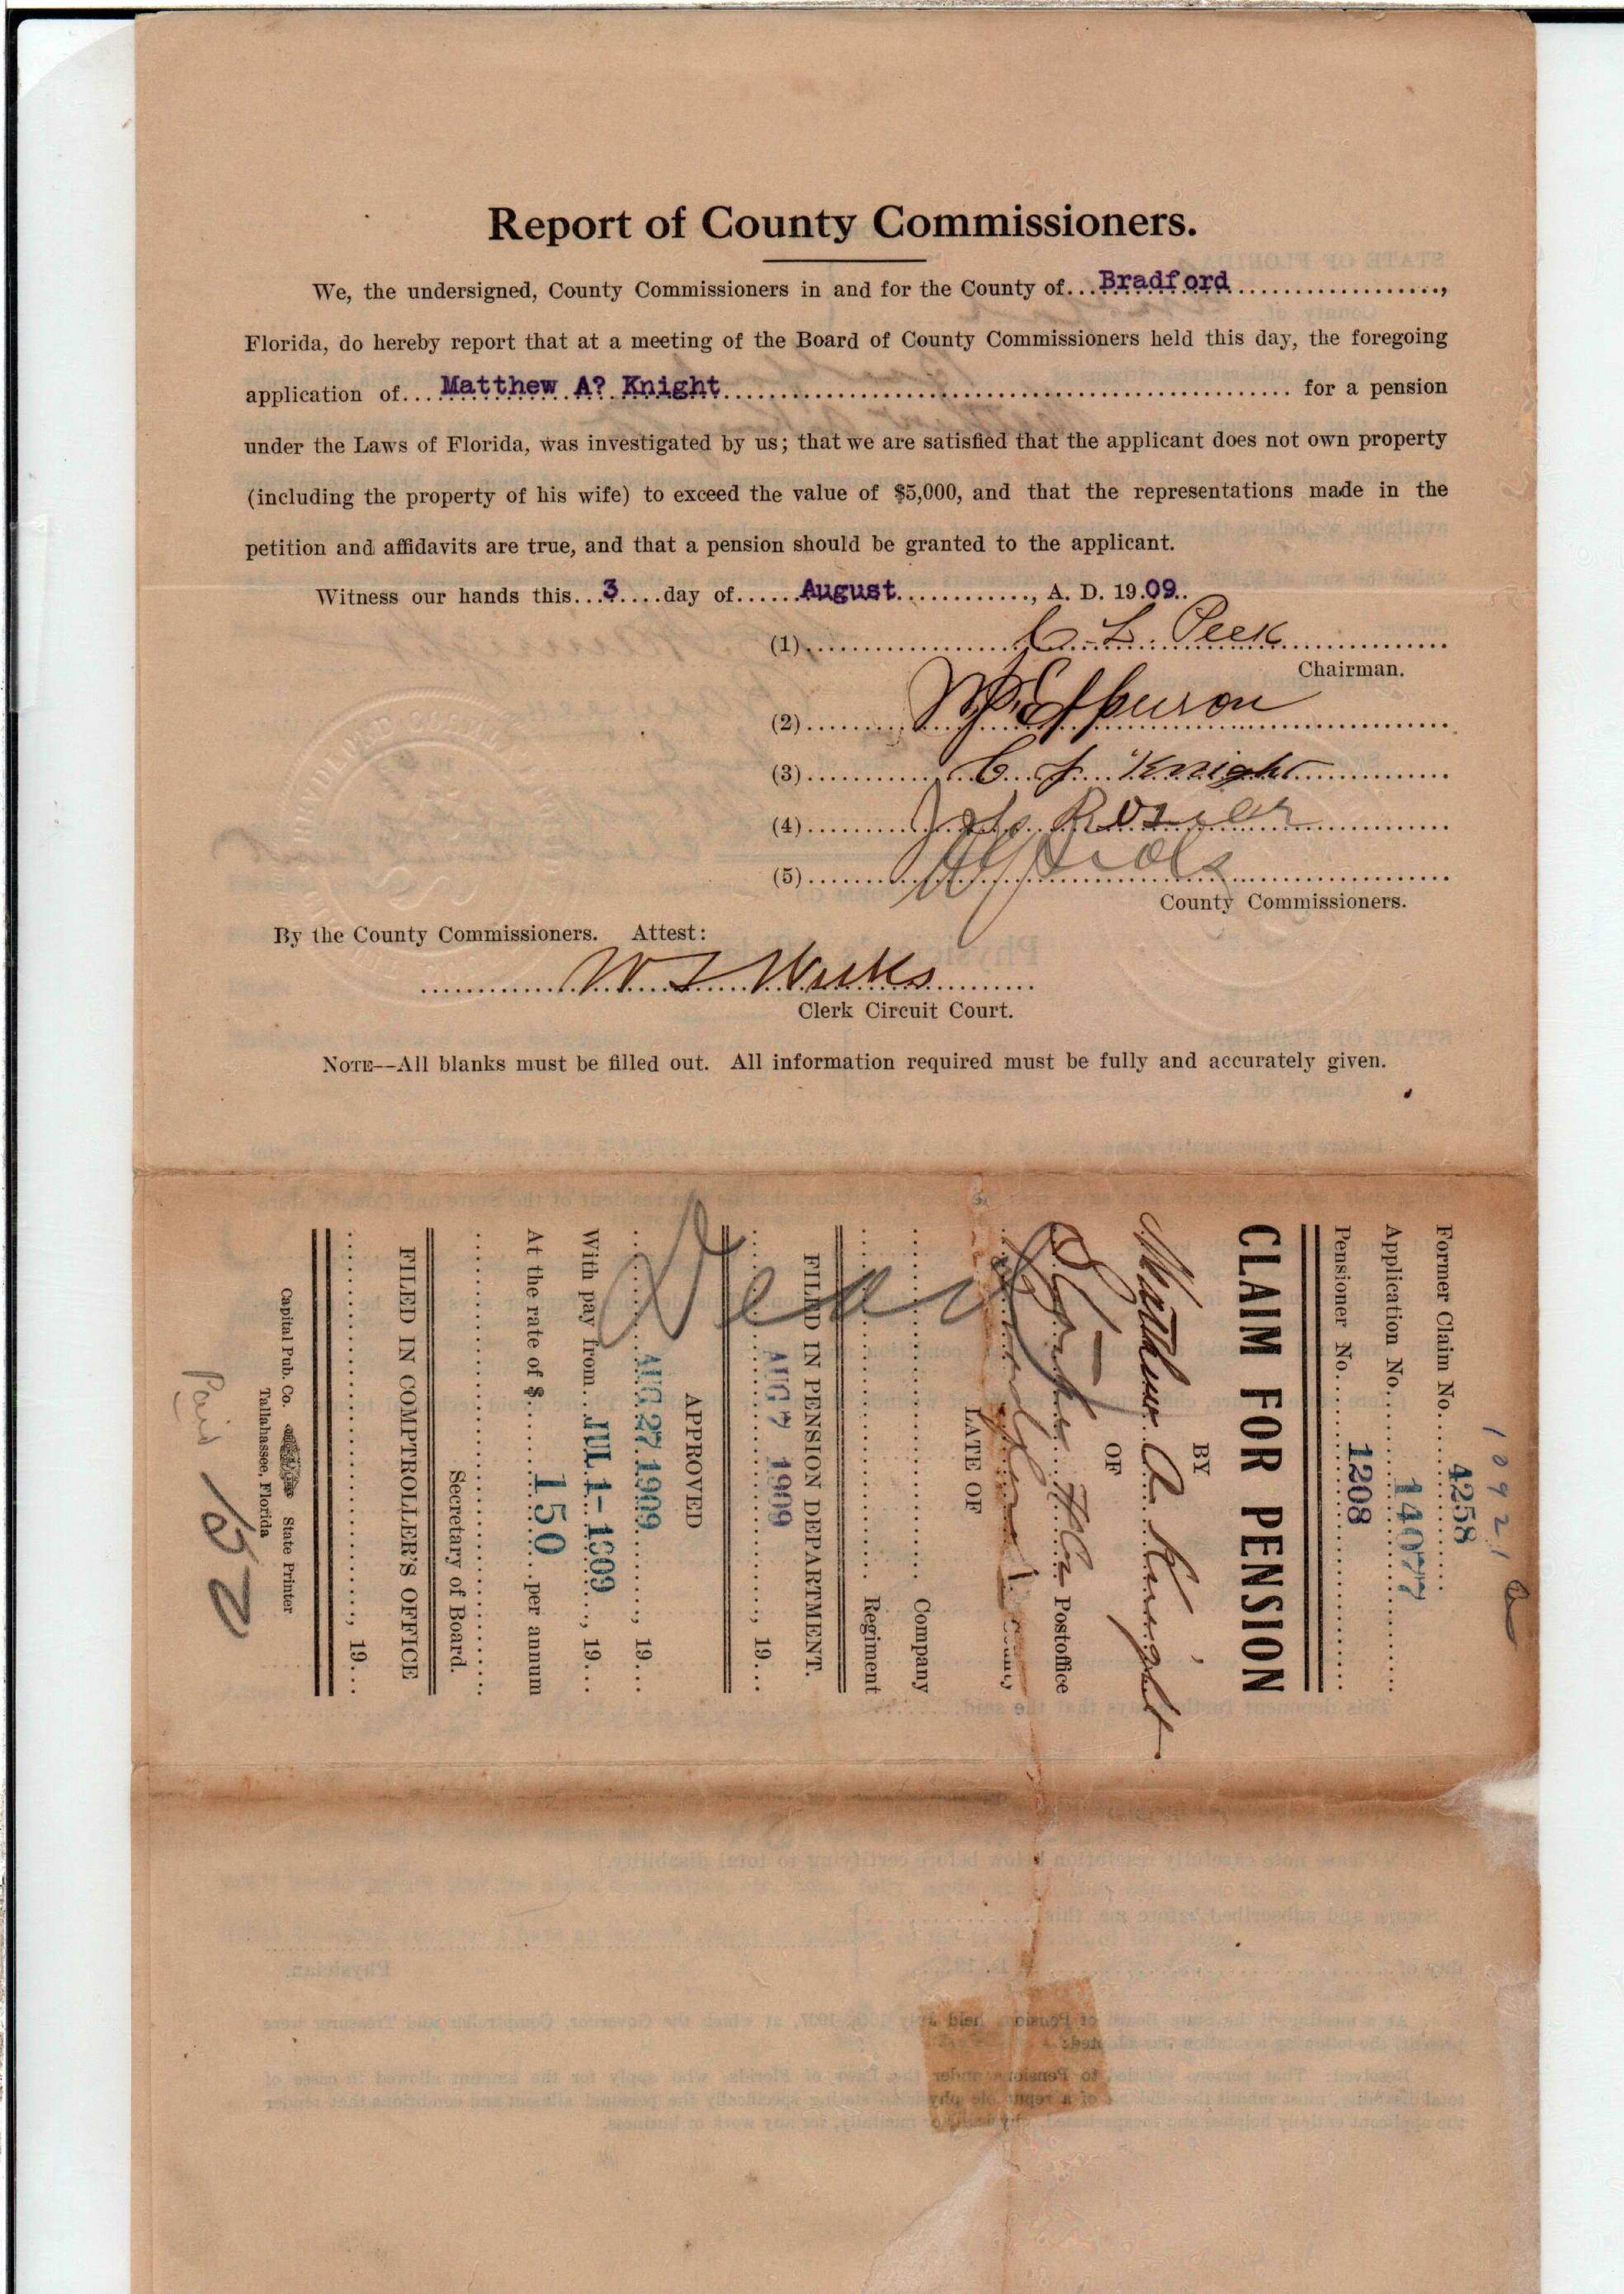 Report of County Commissioners.
We, the undersigned, County Commissioners in and for the County of...Bradford..................,
Florida, do hereby report that at a meeting of the Board of County Commissioners held this day, the foregoing
application of...Matthew A? Knight.................................................. for a pension
under the Laws of Florida, was investigated by us; that we are satisfied that the applicant does not own property
(including the property of his wife) to exceed the value of $5,000, and that the representations made in the
petition and affidavits are true, and that a pension should be granted to the applicant.
Witness our hands this...3....day of......August............., A. D. 19.09..
(1)..................C. L. Peek..................
Chairman.
(2)..................
(3)............C. J. Knight..................
(4)............Rosier..................
(5)..................
County Commissioners.
By the County Commissioners. Attest:
............W J Weeks............
Clerk Circuit Court.
NOTE--All blanks must be filled out. All information required must be fully and accurately given.
10921
Former Claim No....4258.........
Application No......14077.........
Pensioner No......1208............
CLAIM FOR PENSION
BY
Matthew A Knight
OF
Fla Postoffice
County
LATE OF
........................ Company
........................ Regiment
Dead
FILED IN PENSION DEPARTMENT.
AUG 7 1909........, 19...
APPROVED
AUG 27 1909........, 19...
With pay from...JUL 1- 1909...., 19...
At the rate of $......150....per annum
........................
Secretary of Board.
FILED IN COMPTROLLER'S OFFICE
........................, 19...
Capital Pub. Co. State Printer
Tallahassee, Florida
Paid 152